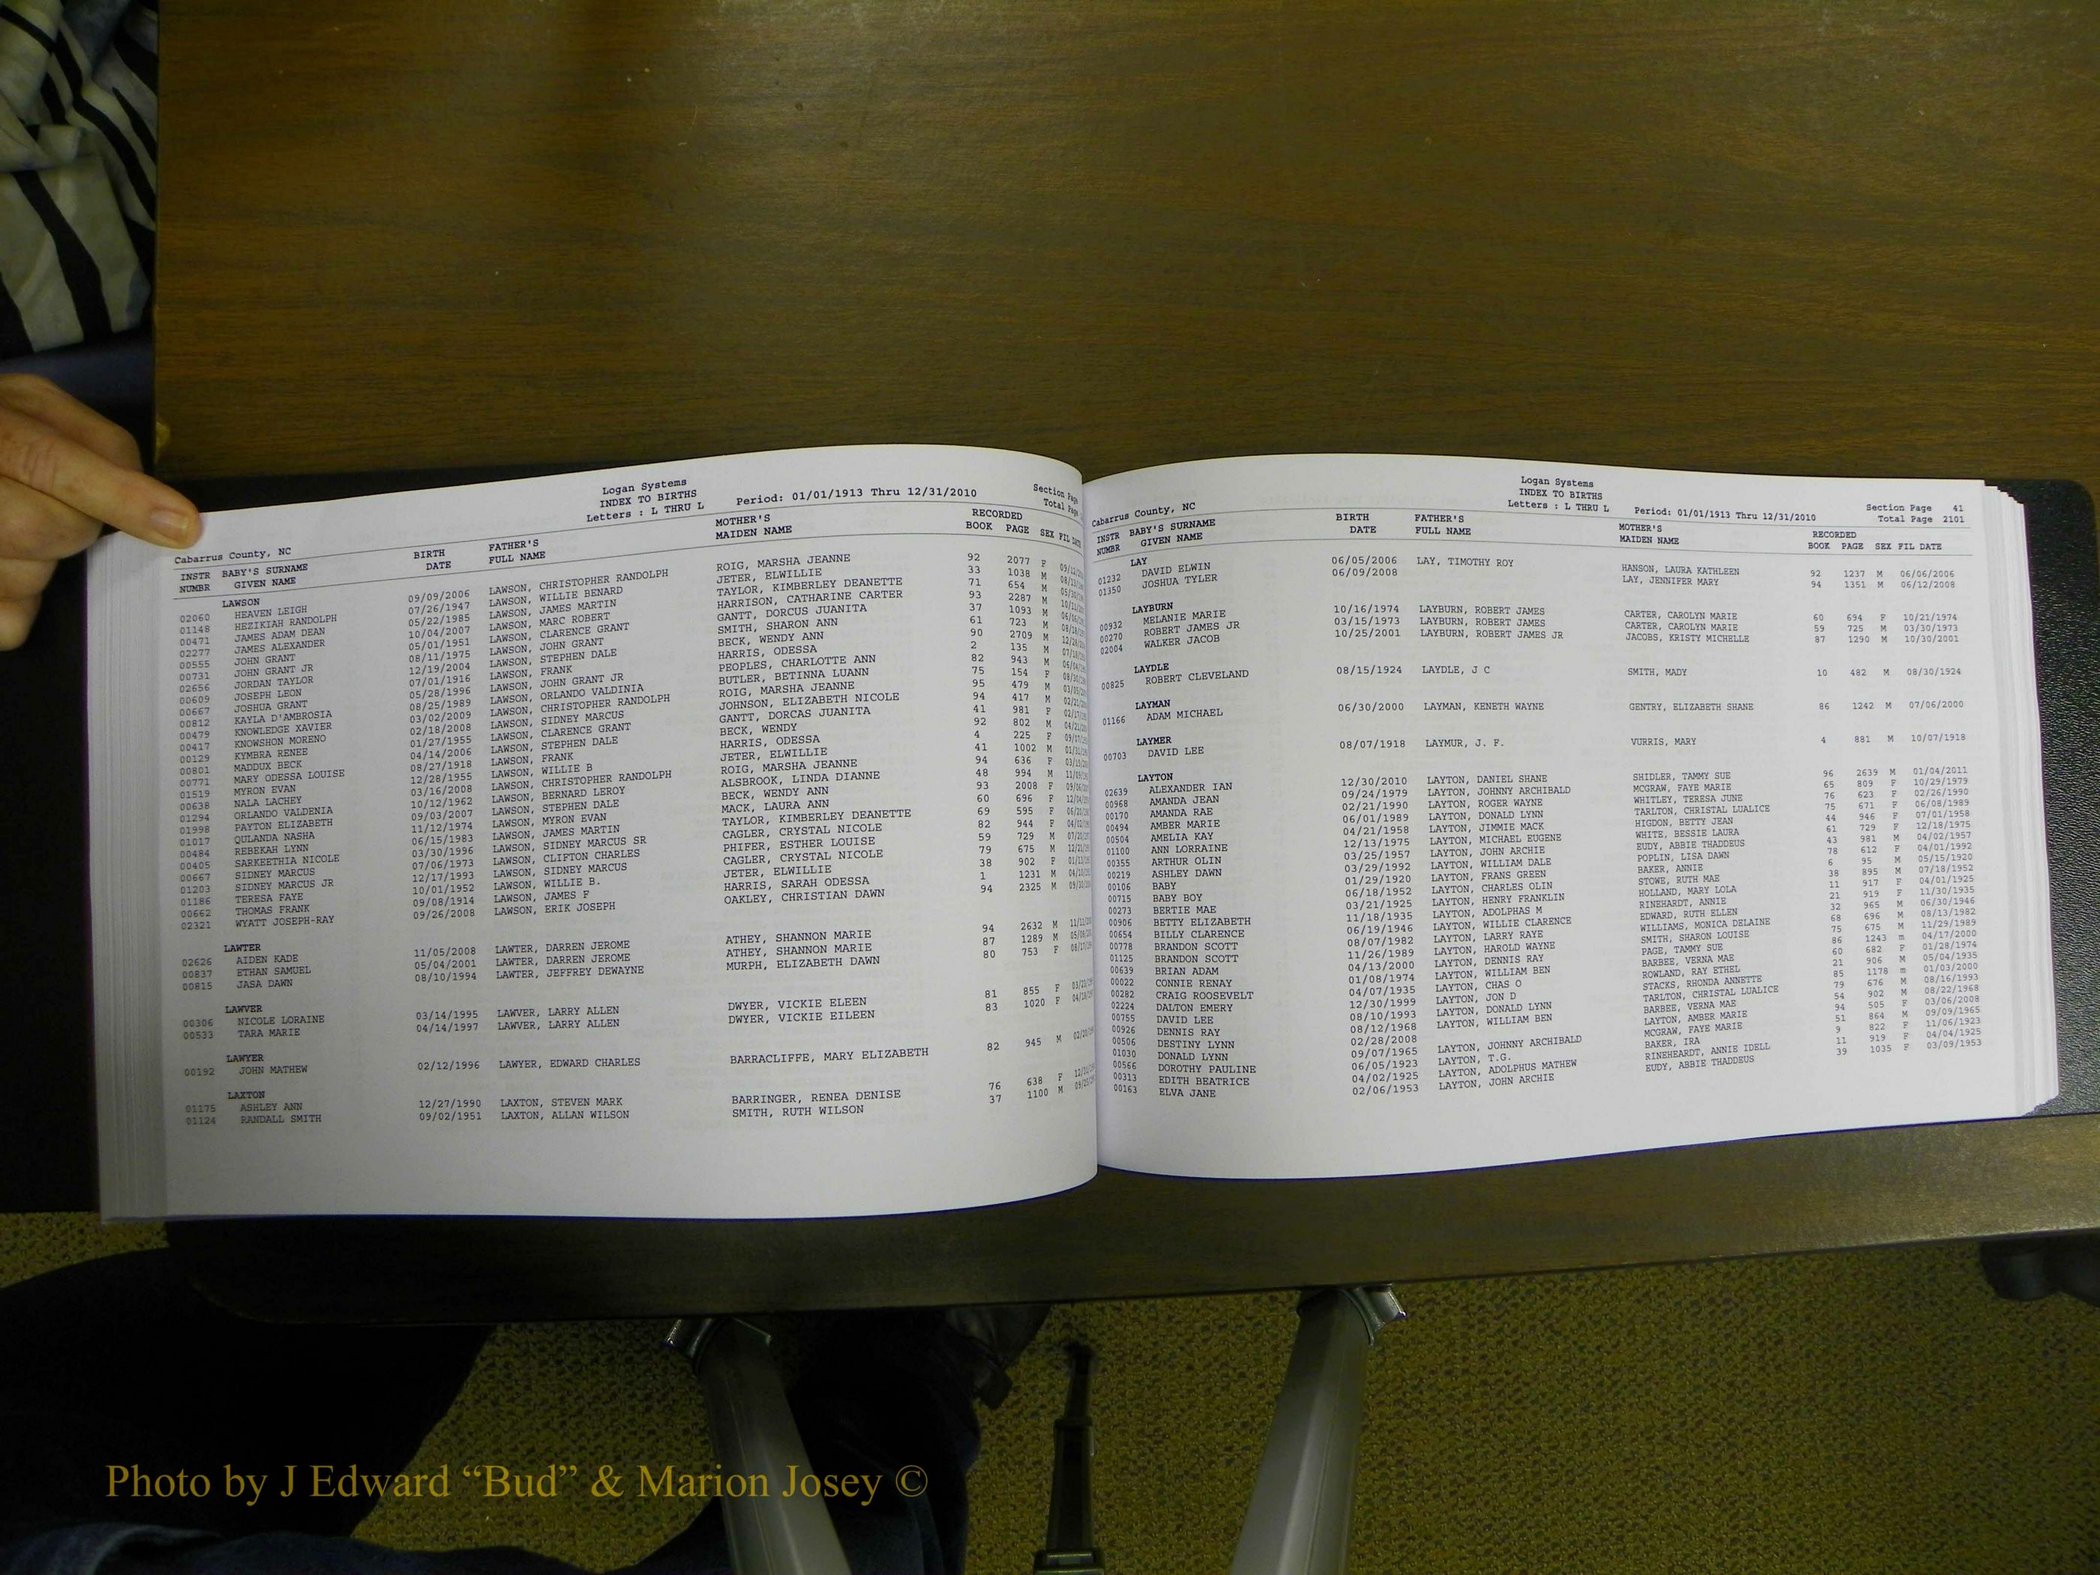 Logan Systems
INDEX TO BIRTHS
Letters : L THRU L Period: 01/01/1913 Thru 12/31/2010
Section Page
Total Page
Cabarrus County, NC
INSTR BABY'S SURNAME BIRTH FATHER'S MOTHER'S RECORDED
NUMBR GIVEN NAME DATE FULL NAME MAIDEN NAME BOOK PAGE SEX FIL DATE
LAWSON
02060 HEAVEN LEIGH 09/09/2006 LAWSON, CHRISTOPHER RANDOLPH ROIG, MARSHA JEANNE 92 2077 F
01148 HEZIKIAH RANDOLPH 07/26/1947 LAWSON, WILLIE BENARD JETER, ELWILLIE 33 1038 M
00471 JAMES ADAM DEAN 05/22/1985 LAWSON, JAMES MARTIN TAYLOR, KIMBERLEY DEANETTE 71 654 M
02277 JAMES ALEXANDER 10/04/2007 LAWSON, MARC ROBERT HARRISON, CATHARINE CARTER 93 2287 M
00555 JOHN GRANT 05/01/1951 LAWSON, CLARENCE GRANT GANTT, DORCUS JUANITA 37 1093 M
00731 JOHN GRANT JR 08/11/1975 LAWSON, JOHN GRANT SMITH, SHARON ANN 61 723 M
02656 JORDAN TAYLOR 12/19/2004 LAWSON, STEPHEN DALE BECK, WENDY ANN 90 2709 M
00609 JOSEPH LEON 07/01/1916 LAWSON, FRANK HARRIS, ODESSA 2 135 M
00667 JOSHUA GRANT 05/28/1996 LAWSON, JOHN GRANT JR PEOPLES, CHARLOTTE ANN 82 943 M
00812 KAYLA D'AMBROSIA 08/25/1989 LAWSON, ORLANDO VALDINIA BUTLER, BETINNA LUANN 75 154 F
00479 KNOWLEDGE XAVIER 03/02/2009 LAWSON, CHRISTOPHER RANDOLPH ROIG, MARSHA JEANNE 95 479 M
00417 KNOWSHON MORENO 02/18/2008 LAWSON, SIDNEY MARCUS JOHNSON, ELIZABETH NICOLE 94 417 M
00129 KYMBRA RENEE 01/27/1955 LAWSON, CLARENCE GRANT GANTT, DORCAS JUANITA 41 981 F
00801 MADDUX BECK 04/14/2006 LAWSON, STEPHEN DALE BECK, WENDY 92 802 M
00771 MARY ODESSA LOUISE 08/27/1918 LAWSON, FRANK HARRIS, ODESSA 4 225 F
01519 MYRON EVAN 12/28/1955 LAWSON, WILLIE B JETER, ELWILLIE 41 1002 M
00638 NALA LACHEY 03/16/2008 LAWSON, CHRISTOPHER RANDOLPH ROIG, MARSHA JEANNE 94 636 F
01294 ORLANDO VALDENIA 10/12/1962 LAWSON, BERNARD LEROY ALSBROOK, LINDA DIANNE 48 994 M
01998 PAYTON ELIZABETH 09/03/2007 LAWSON, STEPHEN DALE BECK, WENDY ANN 93 2008 F
01017 QULANDA NASHA 11/12/1974 LAWSON, MYRON EVAN MACK, LAURA ANN 60 696 F
00484 REBEKAH LYNN 06/15/1983 LAWSON, JAMES MARTIN TAYLOR, KIMBERLEY DEANETTE 69 595 F
00405 SARKEETHIA NICOLE 03/30/1996 LAWSON, SIDNEY MARCUS SR CAGLER, CRYSTAL NICOLE 82 944 F
00667 SIDNEY MARCUS 07/06/1973 LAWSON, CLIFTON CHARLES PHIFER, ESTHER LOUISE 59 729 M
01203 SIDNEY MARCUS JR 12/17/1993 LAWSON, SIDNEY MARCUS CAGLER, CRYSTAL NICOLE 79 675 M
01186 TERESA FAYE 10/01/1952 LAWSON, WILLIE B. JETER, ELWILLIE 38 902 F
00662 THOMAS FRANK 09/08/1914 LAWSON, JAMES F HARRIS, SARAH ODESSA 1 1231 M
02321 WYATT JOSEPH-RAY 09/26/2008 LAWSON, ERIK JOSEPH OAKLEY, CHRISTIAN DAWN 94 2325 M
LAWTER
02626 AIDEN KADE 11/05/2008 LAWTER, DARREN JEROME ATHEY, SHANNON MARIE 94 2632 M
00837 ETHAN SAMUEL 05/04/2001 LAWTER, DARREN JEROME ATHEY, SHANNON MARIE 87 1289 M
00815 JASA DAWN 08/10/1994 LAWTER, JEFFREY DEWAYNE MURPH, ELIZABETH DAWN 80 753 F
LAWVER
00306 NICOLE LORAINE 03/14/1995 LAWVER, LARRY ALLEN DWYER, VICKIE ELEEN 81 855 F
00533 TARA MARIE 04/14/1997 LAWVER, LARRY ALLEN DWYER, VICKIE EILEEN 83 1020 F
LAWYER
00192 JOHN MATHEW 02/12/1996 LAWYER, EDWARD CHARLES BARRACLIFFE, MARY ELIZABETH 82 945 M
LAXTON
01175 ASHLEY ANN 12/27/1990 LAXTON, STEVEN MARK BARRINGER, RENEA DENISE 76 638 F
01124 RANDALL SMITH 09/02/1951 LAXTON, ALLAN WILSON SMITH, RUTH WILSON 37 1100 M
Logan Systems
INDEX TO BIRTHS
Letters : L THRU L Period: 01/01/1913 Thru 12/31/2010
Section Page 41
Total Page 2101
Cabarrus County, NC
INSTR BABY'S SURNAME BIRTH FATHER'S MOTHER'S RECORDED
NUMBR GIVEN NAME DATE FULL NAME MAIDEN NAME BOOK PAGE SEX FIL DATE
LAY
01232 DAVID ELWIN 06/05/2006 LAY, TIMOTHY ROY HANSON, LAURA KATHLEEN 92 1237 M 06/06/2006
01350 JOSHUA TYLER 06/09/2008 LAY, JENNIFER MARY 94 1351 M 06/12/2008
LAYBURN
00932 MELANIE MARIE 10/16/1974 LAYBURN, ROBERT JAMES CARTER, CAROLYN MARIE 60 694 F 10/21/1974
00270 ROBERT JAMES JR 03/15/1973 LAYBURN, ROBERT JAMES CARTER, CAROLYN MARIE 59 725 M 03/30/1973
02004 WALKER JACOB 10/25/2001 LAYBURN, ROBERT JAMES JR JACOBS, KRISTY MICHELLE 87 1290 M 10/30/2001
LAYDLE
00825 ROBERT CLEVELAND 08/15/1924 LAYDLE, J C SMITH, MADY 10 482 M 08/30/1924
LAYMAN
01166 ADAM MICHAEL 06/30/2000 LAYMAN, KENETH WAYNE GENTRY, ELIZABETH SHANE 86 1242 M 07/06/2000
LAYMER
00703 DAVID LEE 08/07/1918 LAYMUR, J. F. VURRIS, MARY 4 881 M 10/07/1918
LAYTON
02639 ALEXANDER IAN 12/30/2010 LAYTON, DANIEL SHANE SHIDLER, TAMMY SUE 96 2639 M 01/04/2011
00968 AMANDA JEAN 09/24/1979 LAYTON, JOHNNY ARCHIBALD MCGRAW, FAYE MARIE 65 809 F 10/29/1979
00170 AMANDA RAE 02/21/1990 LAYTON, ROGER WAYNE WHITLEY, TERESA JUNE 76 623 F 02/26/1990
00494 AMBER MARIE 06/01/1989 LAYTON, DONALD LYNN TARLTON, CHRISTAL LUALICE 75 671 F 06/08/1989
00504 AMELIA KAY 04/21/1958 LAYTON, JIMMIE MACK HIGDON, BETTY JEAN 44 946 F 07/01/1958
01100 ANN LORRAINE 12/13/1975 LAYTON, MICHAEL EUGENE WHITE, BESSIE LAURA 61 729 F 12/18/1975
00355 ARTHUR OLIN 03/25/1957 LAYTON, JOHN ARCHIE EUDY, ABBIE THADDEUS 43 981 M 04/02/1957
00219 ASHLEY DAWN 03/29/1992 LAYTON, WILLIAM DALE POPLIN, LISA DAWN 78 612 F 04/01/1992
00106 BABY 01/29/1920 LAYTON, FRANS GREEN BAKER, ANNIE 6 95 M 05/15/1920
00715 BABY BOY 06/18/1952 LAYTON, CHARLES OLIN STOWE, RUTH MAE 38 895 M 07/18/1952
00273 BERTIE MAE 03/21/1925 LAYTON, HENRY FRANKLIN HOLLAND, MARY LOLA 11 917 F 04/01/1925
00906 BETTY ELIZABETH 11/18/1935 LAYTON, ADOLPHAS M RINEHARDT, ANNIE 21 919 F 11/30/1935
00654 BILLY CLARENCE 06/19/1946 LAYTON, WILLIE CLARENCE EDWARD, RUTH ELLEN 32 965 M 06/30/1946
00778 BRANDON SCOTT 08/07/1982 LAYTON, LARRY RAYE WILLIAMS, MONICA DELAINE 68 696 M 08/13/1982
01125 BRANDON SCOTT 11/26/1989 LAYTON, HAROLD WAYNE SMITH, SHARON LOUISE 75 675 M 11/29/1989
00639 BRIAN ADAM 04/13/2000 LAYTON, DENNIS RAY PAGE, TAMMY SUE 86 1243 m 04/17/2000
00022 CONNIE RENAY 01/08/1974 LAYTON, WILLIAM BEN BARBEE, VERNA MAE 60 682 F 01/28/1974
00282 CRAIG ROOSEVELT 04/07/1935 LAYTON, CHAS O ROWLAND, RAY ETHEL 21 906 M 05/04/1935
02224 DALTON EMERY 12/30/1999 LAYTON, JON D STACKS, RHONDA ANNETTE 85 1178 m 01/03/2000
00755 DAVID LEE 08/10/1993 LAYTON, DONALD LYNN TARLTON, CHRISTAL LUALICE 79 676 M 08/16/1993
00926 DENNIS RAY 08/12/1968 LAYTON, WILLIAM BEN BARBEE, VERNA MAE 54 902 M 08/22/1968
00506 DESTINY LYNN 02/28/2008 LAYTON, AMBER MARIE 94 505 F 03/06/2008
01030 DONALD LYNN 09/07/1965 LAYTON, JOHNNY ARCHIBALD MCGRAW, FAYE MARIE 51 864 M 09/09/1965
00566 DOROTHY PAULINE 06/05/1923 LAYTON, T.G. BAKER, IRA 9 822 F 11/06/1923
00313 EDITH BEATRICE 04/02/1925 LAYTON, ADOLPHUS MATHEW RINEHEARDT, ANNIE IDELL 11 919 F 04/04/1925
00163 ELVA JANE 02/06/1953 LAYTON, JOHN ARCHIE EUDY, ABBIE THADDEUS 39 1035 F 03/09/1953
Photo by J Edward “Bud” & Marion Josey ©